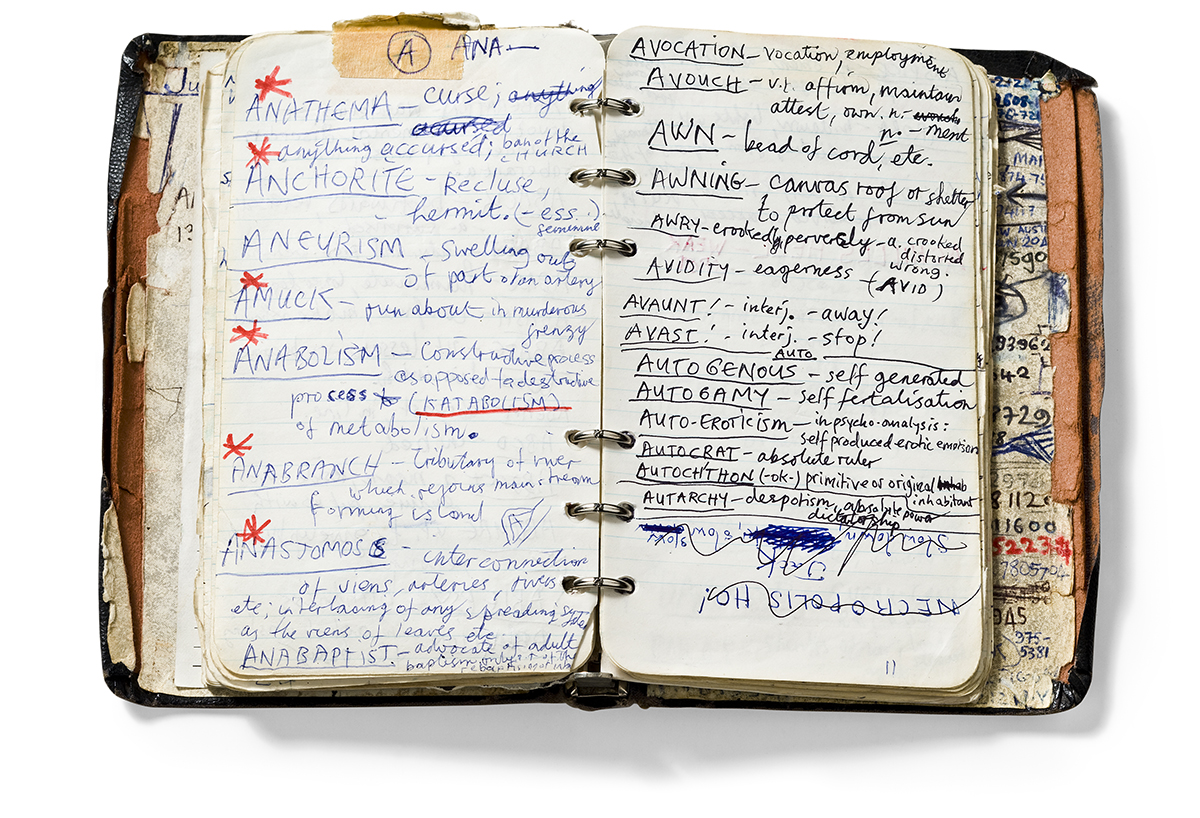 A ANA—
ANATHEMA – curse; anything
accursed
anything accursed; ban of the
CHURCH
ANCHORITE – Recluse,
hermit. (-ess.)
feminine
ANEURISM – swelling out
of part of an artery
AMUCK – run about in murderous
frenzy
ANABOLISM – Constructive process
as opposed to destructive
process (KATABOLISM)
of metabolism.
ANABRANCH – Tributary of river
which rejoins mainstream
forming island
A
ANASTOMOSIS – interconnection
of viens, arteries, rivers
etc; interlacing of any spreading
as the viens of leaves etc
ANABAPTIST – advocate of adult
baptism only
AVOCATION – vocation, employment
AVOUCH – v.t. affirm, maintain
attest, own. n.
n. – ment
AWN – bead of cord, etc.
AWNING – canvas roof or shelter
to protect from sun
AWRY – crookedly, perversely – a. crooked
distorted
wrong.
AVIDITY – eagerness – (AVID)
AVAUNT! – interj. – away!
AVAST! – interj. – stop!
AUTO
AUTOGENOUS – self generated
AUTOGAMY – self fertalisation
AUTO-EROTICISM – in psycho-analysis:
self produced erotic emotion
AUTOCRAT – absolute ruler
AUTOCHTHON (-ok-) primitive or original
inhabitant
AUTARCHY – despotism, absolute power
dictatorship
NECROPOLIS HO!
11